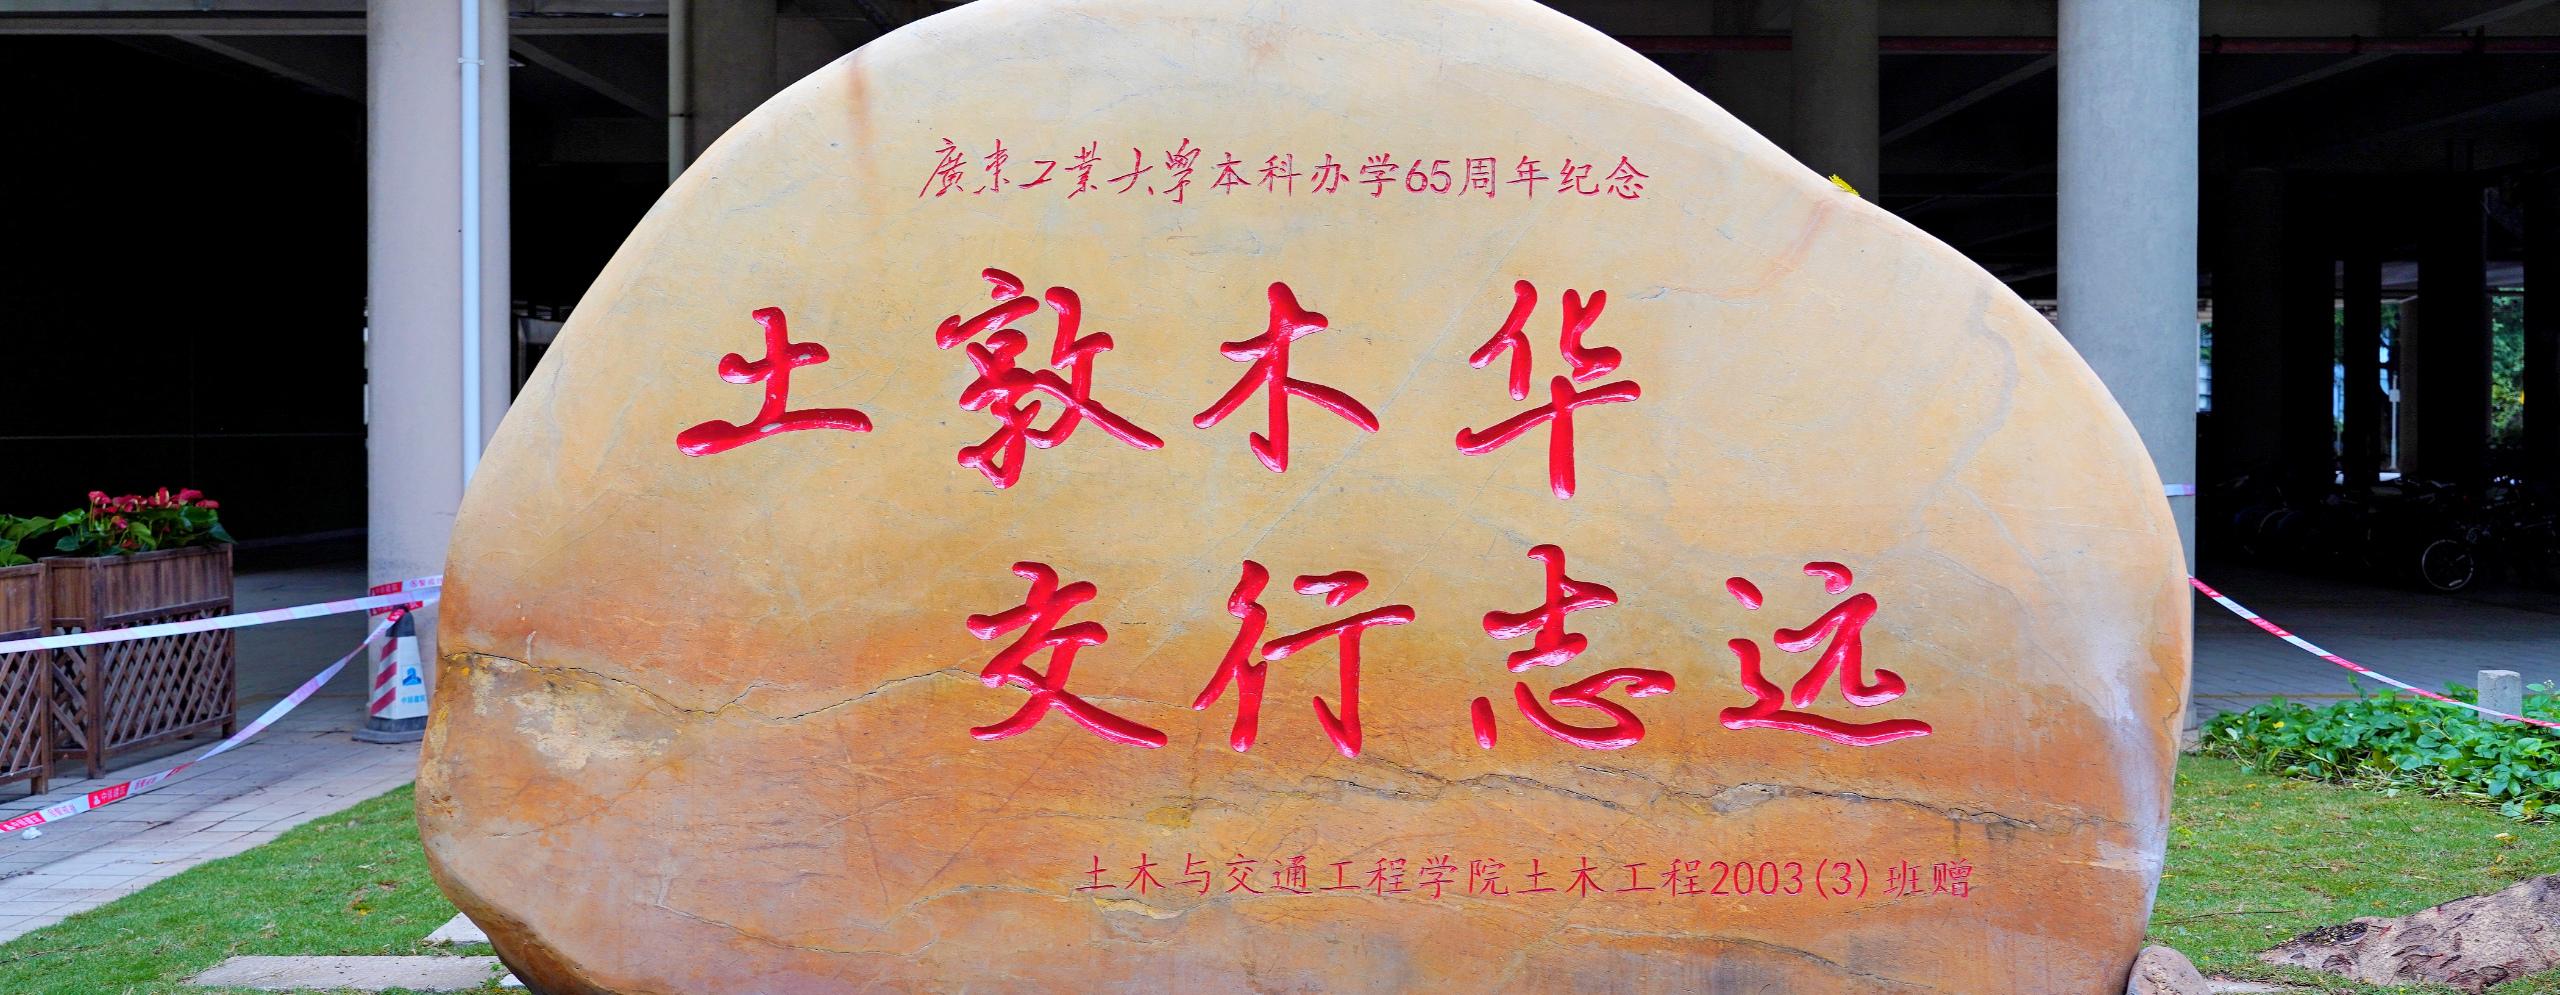 廣東工業大學本科办学65周年纪念
土敦木华
交行志远
土木与交通工程学院土木工程2003(3)班赠